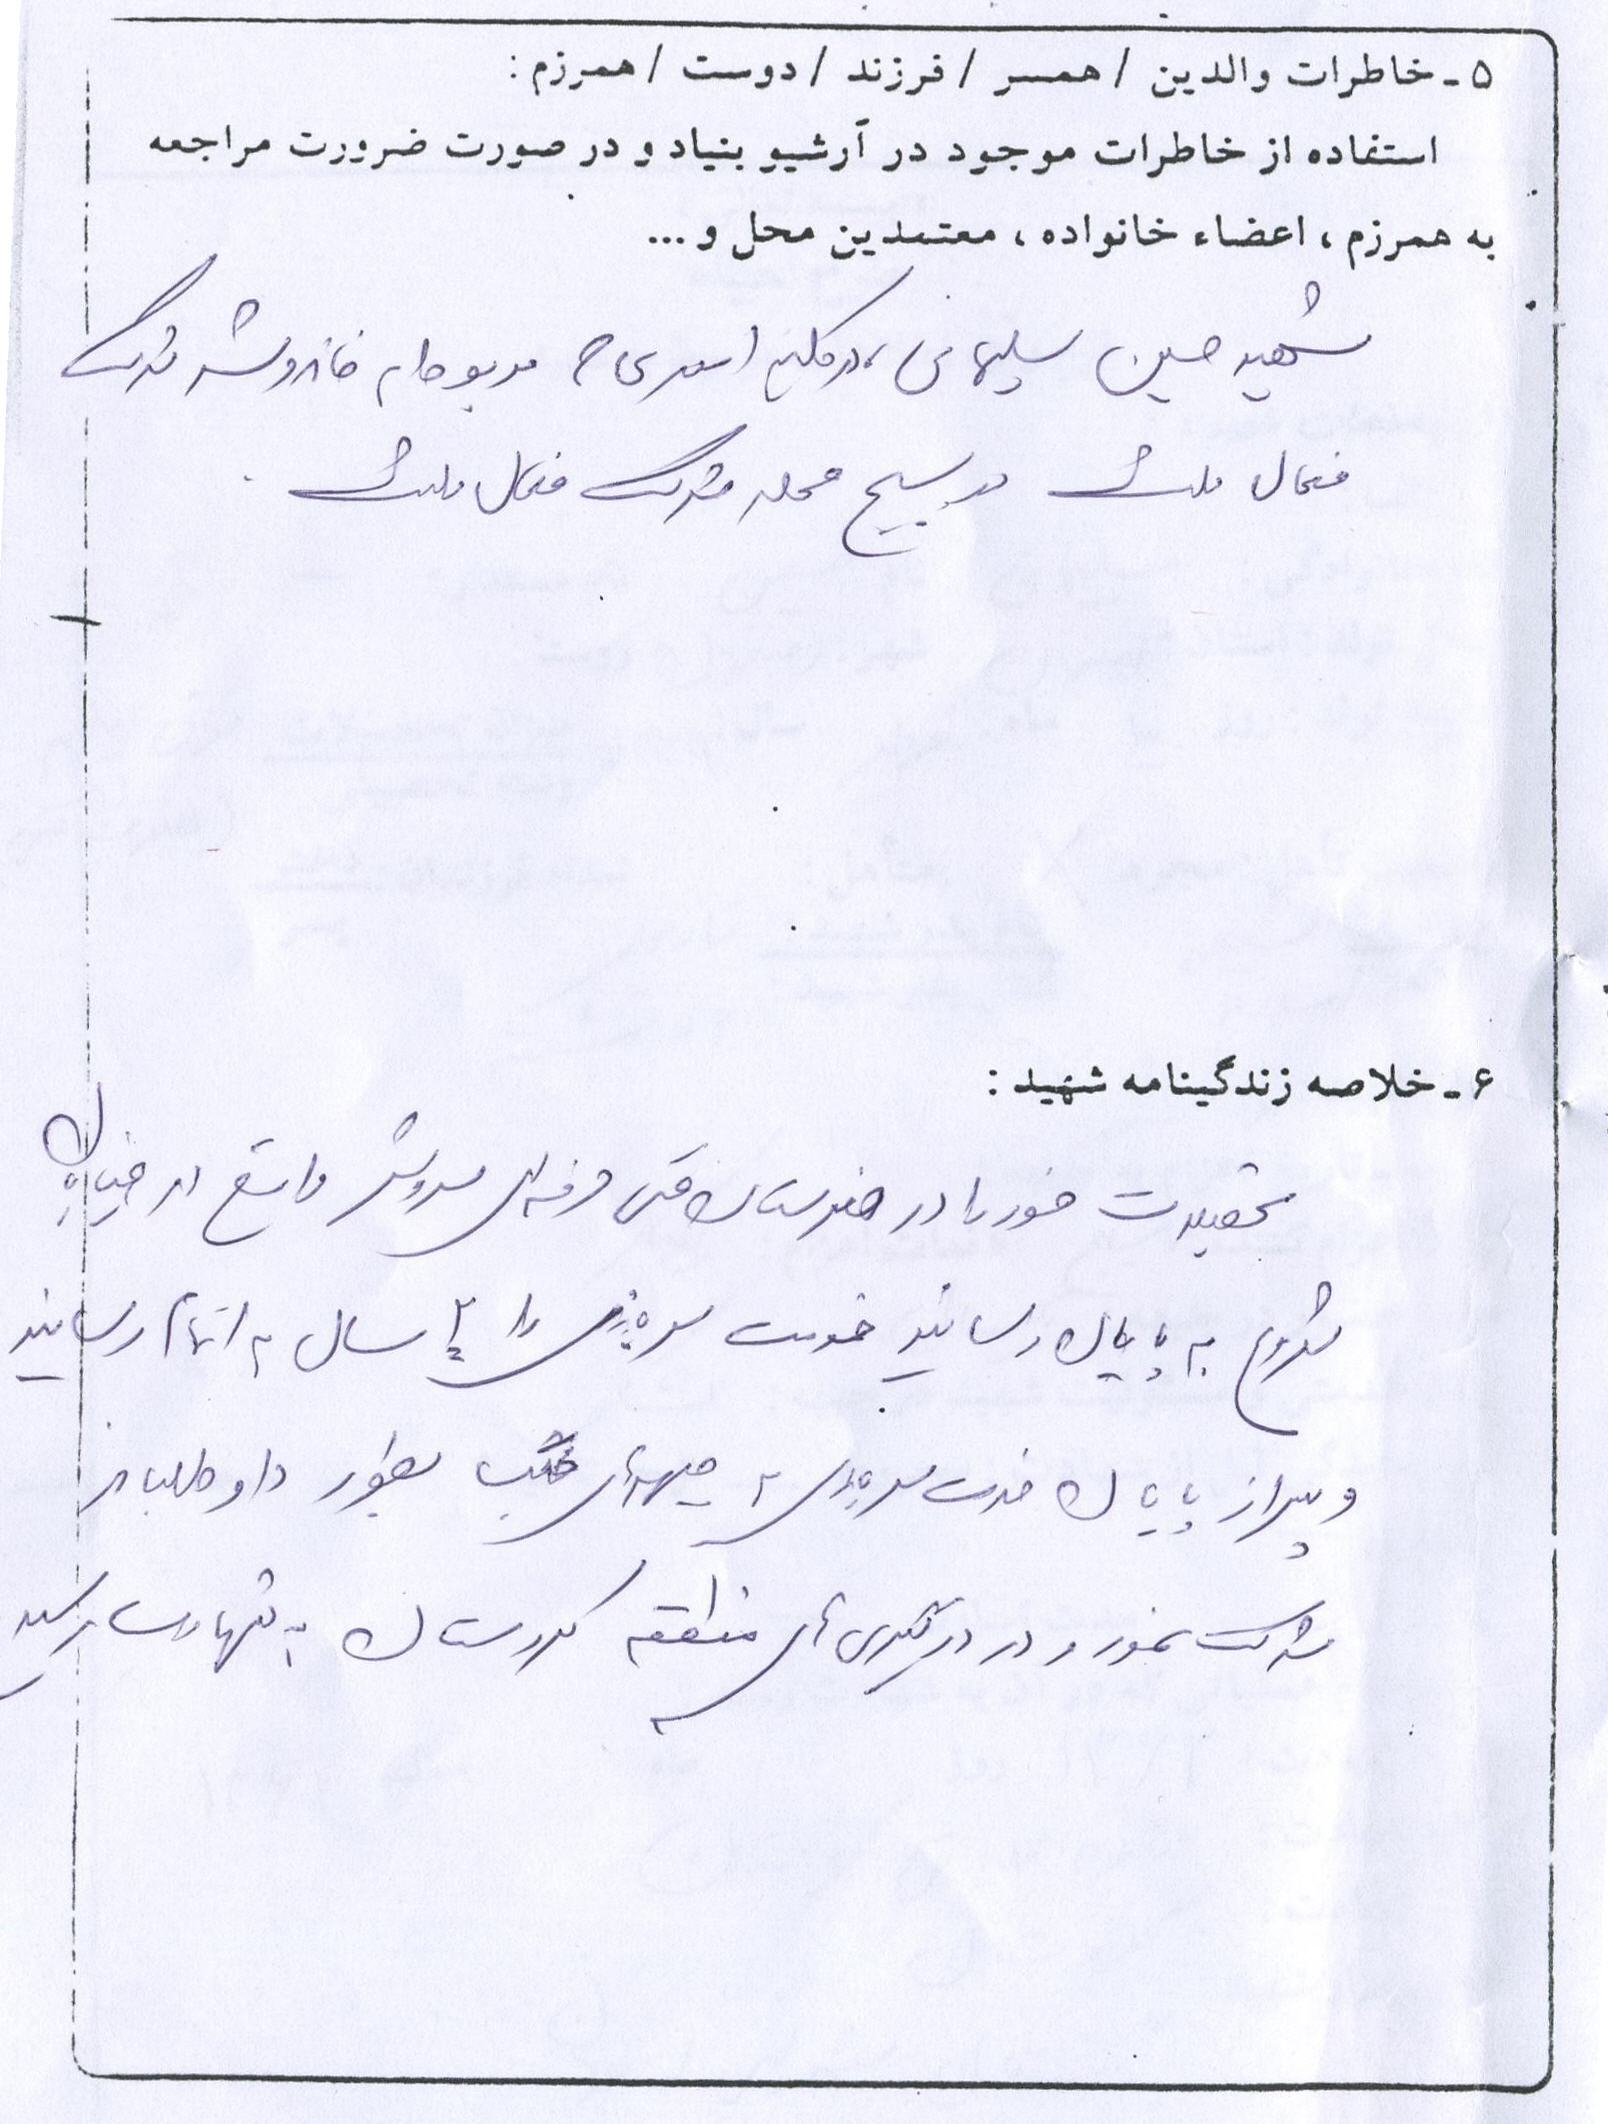 ۵ - خاطرات والدین / همسر / فرزند / دوست / همرزم :
استفاده از خاطرات موجود در آرشیو بنیاد و در صورت ضرورت مراجعه
به همرزم ، اعضاء خانواده ، معتمدین محل و ...
شهید حسین سلیمانی در کلیه اموری که مربوط به خانه و شرکت
فعال داشت در بسیج محله شرکت فعال داشت .
۶ - خلاصه زندگینامه شهید :
تحصیلات خود را در هنرستان فنی حرفه‌ای سروش واقع در خیابان
به پایان رسانید خدمت سربازی را ۲ سال به اتمام رسانید
و پس از پایان خدمت سربازی به جبهه‌های جنگ بطور داوطلبانه
شرکت نمود و در درگیری های منطقه کردستان به شهادت رسید